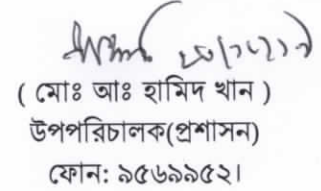 ( মোঃ আঃ হামিদ খান )
উপপরিচালক(প্রশাসন)
ফোন: ৯৫৬৯৯৫২।